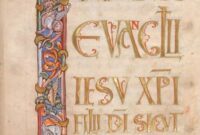 EVAGLII
IESV XPI
FILII DI SICVT